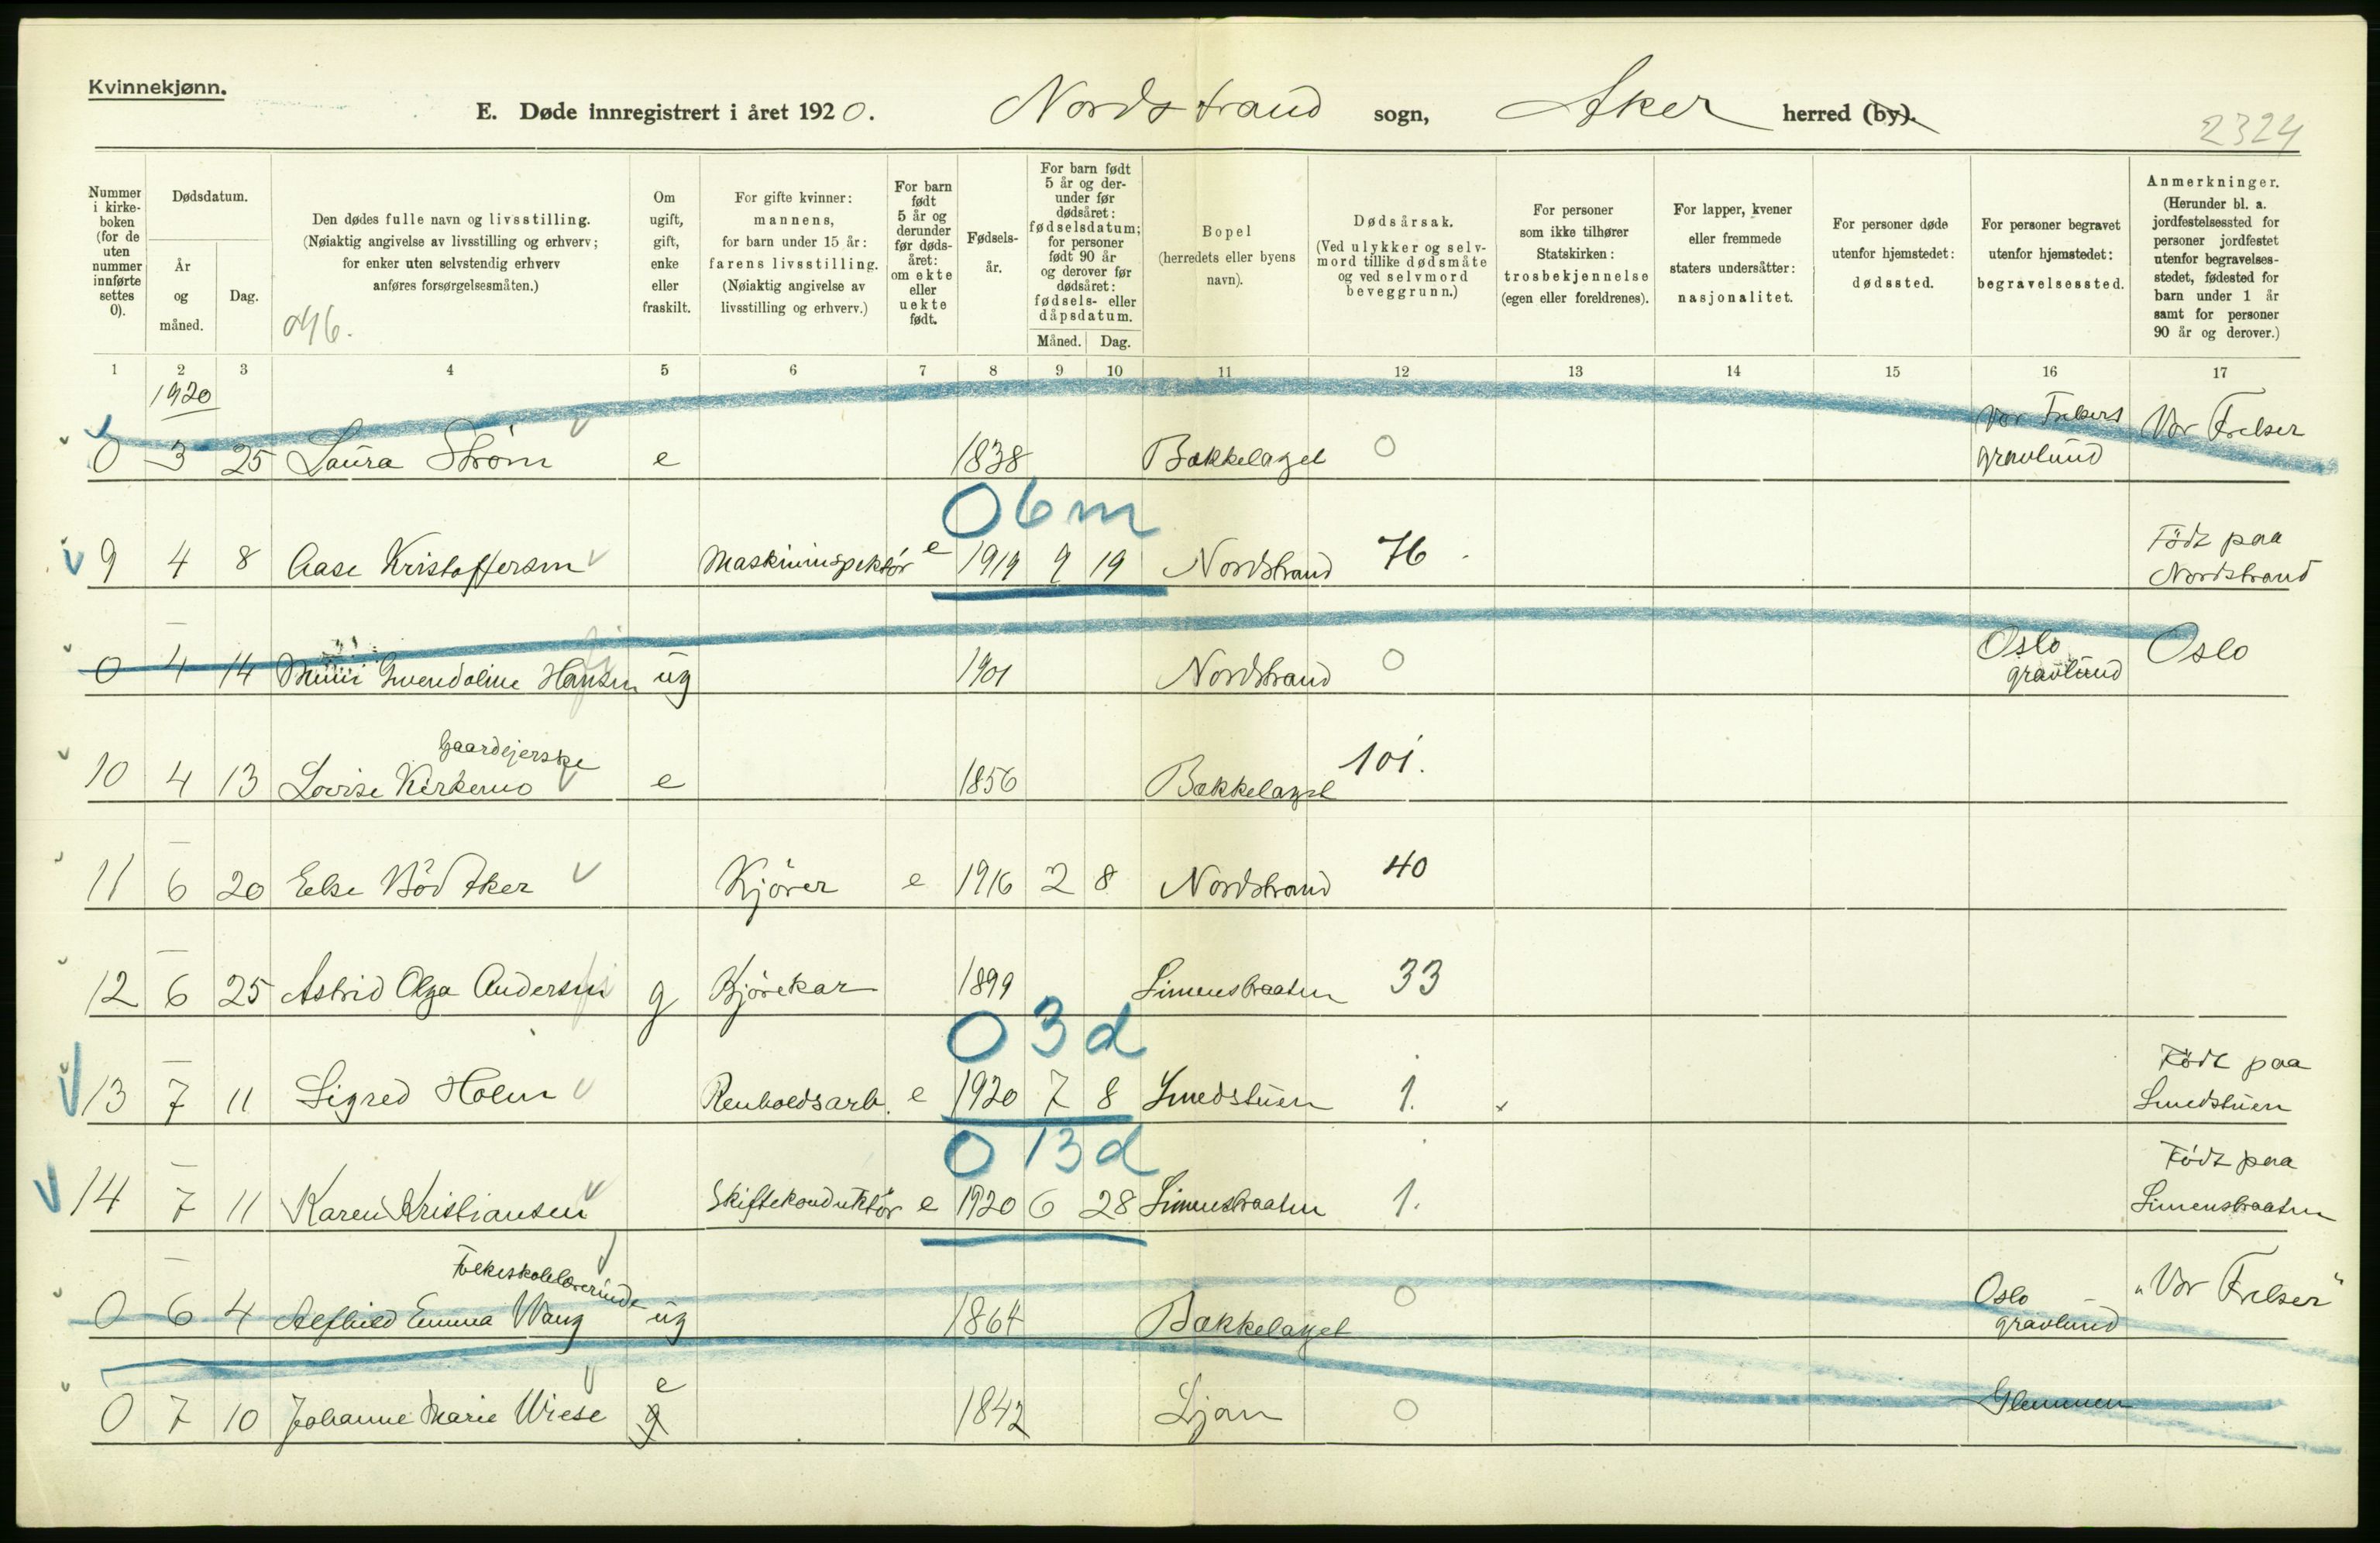 Kvinnekjønn.
E. Døde innregistrert i året 1920. Nordstrand sogn, Aker herred (by).
2324
Nummer i kirke-boken (for de uten nummer innførte settes 0).
Dødsdatum.
År og måned.
Dag.
Den dødes fulle navn og livsstilling.
(Nøiaktig angivelse av livsstilling og erhverv;
for enker uten selvstendig erhverv
anføres forsørgelsesmåten.)
Om ugift, gift, enke eller fraskilt.
For gifte kvinner: mannens, for barn under 15 år: farens livsstilling. (Nøiaktig angivelse av livsstilling og erhverv.)
For barn født 5 år og derunder før døds-året: om ekte eller uekte født.
Fødsels-år.
For barn født 5 år og der-under før dødsåret: fødselsdatum; for personer født 90 år og derover før dødsåret: fødsels- eller dåpsdatum.
Måned. Dag.
Bopel (herredets eller byens navn).
Dødsårsak. (Ved ulykker og selv-mord tillike dødsmåte og ved selvmord beveggrunn.)
For personer som ikke tilhører Statskirken: trosbekjennelse (egen eller foreldrenes).
For lapper, kvener eller fremmede staters undersåtter: nasjonalitet.
For personer døde utenfor hjemstedet: dødssted.
For personer begravet utenfor hjemstedet: begravelsessted.
Anmerkninger. (Herunder bl. a. jordfestelsessted for personer jordfestet utenfor begravelses-stedet, fødested for barn under 1 år samt for personer 90 år og derover.)
1 2 3 4 5 6 7 8 9 10 11 12 13 14 15 16 17
1920
0 3 25 Laura Strøm e 1838 Bækkelaget 0 Vor Frelsers gravlund Vor Frelser
0 6 m
9 4 8 Aase Kristoffersen Maskininspektör e 1919 9 19 Nordstrand 76 Födt paa Nordstrand
0 4 14 Gwendoline Hansen ug 1901 Nordstrand 0 Oslo gravlund Oslo
Gaardejerske
10 4 13 Lovise Kirkemo e 1856 Bækkelaget 101.
11 6 20 Else Bödtker Kjörer e 1916 2 8 Nordstrand 40
12 6 25 Astrid Olga Andersen g Kjörekar 1899 Simenstraaten 33
0 3 d
13 7 11 Sigred Holm Renholdsarb. e 1920 7 8 Smedstuen 1. Födt paa Smedstuen
0 13 d
14 7 11 Karen Kristiansen Skiftekonduktör e 1920 6 28 Simenstraaten 1. Födt paa Simenstraaten
Folkeskolelærerinde
0 6 4 Alfhild Emma Wang ug 1864 Bækkelaget 0 Oslo gravlund "Vor Frelser"
0 7 10 Johanne Marie Wiese g e 1842 Ljan 0 Glemmen